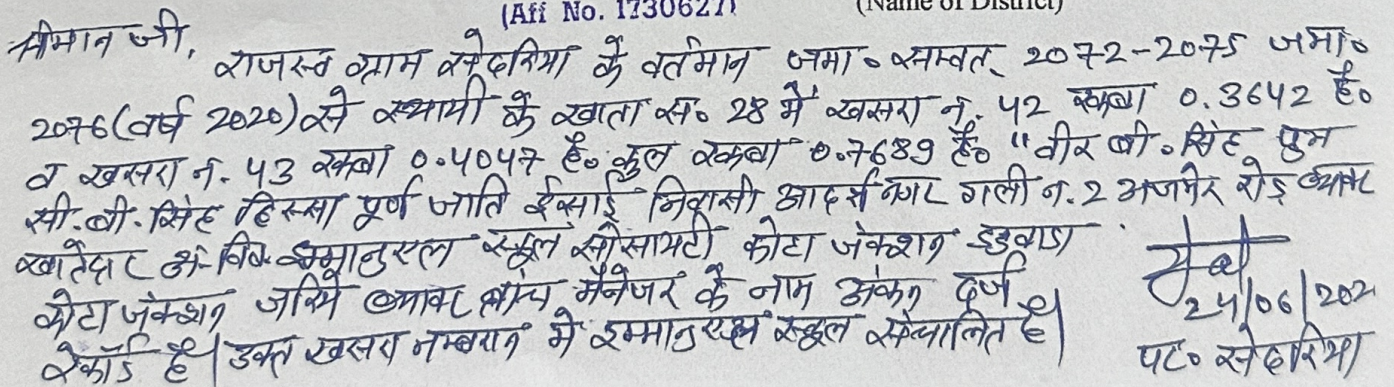 (Aff No. 1730627)
(Name of District)
श्रीमान जी,
राजस्व ग्राम सेदरिया के वर्तमान जमा० सम्वत् 2072-2075 जमा०
2076(वर्ष 2020) से स्थायी के खाता सं० 28 में खसरा नं. 42 रकबा 0.3642 है०
व खसरा नं. 43 रकबा 0.4047 है० कुल रकबा 0.7689 है० "वीर बी. सिंह पुत्र
सी.बी. सिंह हिस्सा पूर्ण जाति ईसाई निवासी आदर्श नगर गली न. 2 अजमेर रोड़ ब्यावर
खातेदार इमानुएल स्कूल सोसायटी कोटा जंक्शन डडवाडा
कोटा जंक्शन जरिये ब्यावर ब्रांच मैनेजर के नाम अंकन दर्ज
रेकॉर्ड है। उक्त खसरा नम्बरान में इम्मानुएल स्कूल संचालित है।
24/06/202
पट० सेदरिया